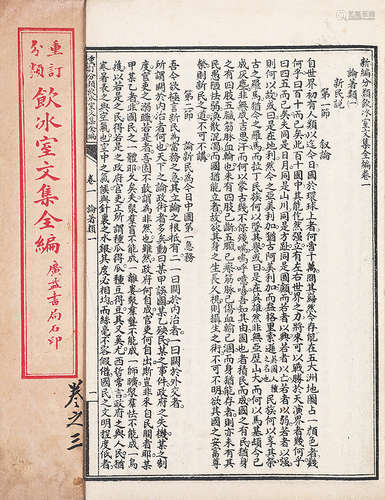 重訂
分類
飲冰室文集全編
廣益書局石印
卷之三
新編分類飲冰室文集全編卷一
論著類(一)
新民說
第一節 敘論
自世界初有人類以迄今日國於環球上者何啻千萬問其巋然今存能在五大洲地圖占一顏色者幾
何乎曰百十而已矣此百十國中其能屹然強立有左右世界之力將來可以戰勝於天演界者幾何乎
曰四五而已矣夫同是日月同是山川同是方趾同是圓顱而若者以興若者以亡若者以弱若者以強
則何以故或曰是在地利然今之亞美利加猶古阿美利加而盎格魯撒遜英國人種之名也民族何以享其榮
古之羅馬猶今之羅馬而拉丁民族何以墜其譽或曰是在英雄然非無亞歷山大而何以馬基頓今已
成灰塵非無成吉思汗而何以蒙古幾不保殘喘嗚呼噫嘻吾知其由國也者積民而成國之有民猶身
之有四肢五臟筋脈血輪也未有四肢已斷五臟已瘵筋脈已傷血輪已涸而身猶能存者則亦未有其
民愚陋怯弱渙散混濁而國猶能立者故欲其身之長生久視則攝生之術不可不明欲其國之安富尊
榮則新民之道不可不講
第二節 論新民為今日中國第一急務
吾今欲極言新民為當務之急其立論之根柢有二一曰關於內治者一曰關於外交者
所謂關於內治者何也天下之論政術者多矣動曰某甲誤國某乙殃民某之事件政府之失機某之制
度官吏之溺職若是者吾固不敢謂為非然也雖然政府何自成官吏何自出斯豈非來自民間者耶某
甲某乙者非國民之一體耶久矣夫聚群盲不能成一離婁聚群聾不能成一師曠聚群怯不能成一烏
獲以若是之民得若是之政府官吏正所謂種瓜得瓜種豆得豆其又奚尤西哲常言政府之與人民猶
寒暑表之與空氣也室中之氣候與針裏之水銀其度必相均而絲毫不容假借國民之文明程度低者
重訂分類飲冰室文集全編 卷一 論著類一 一